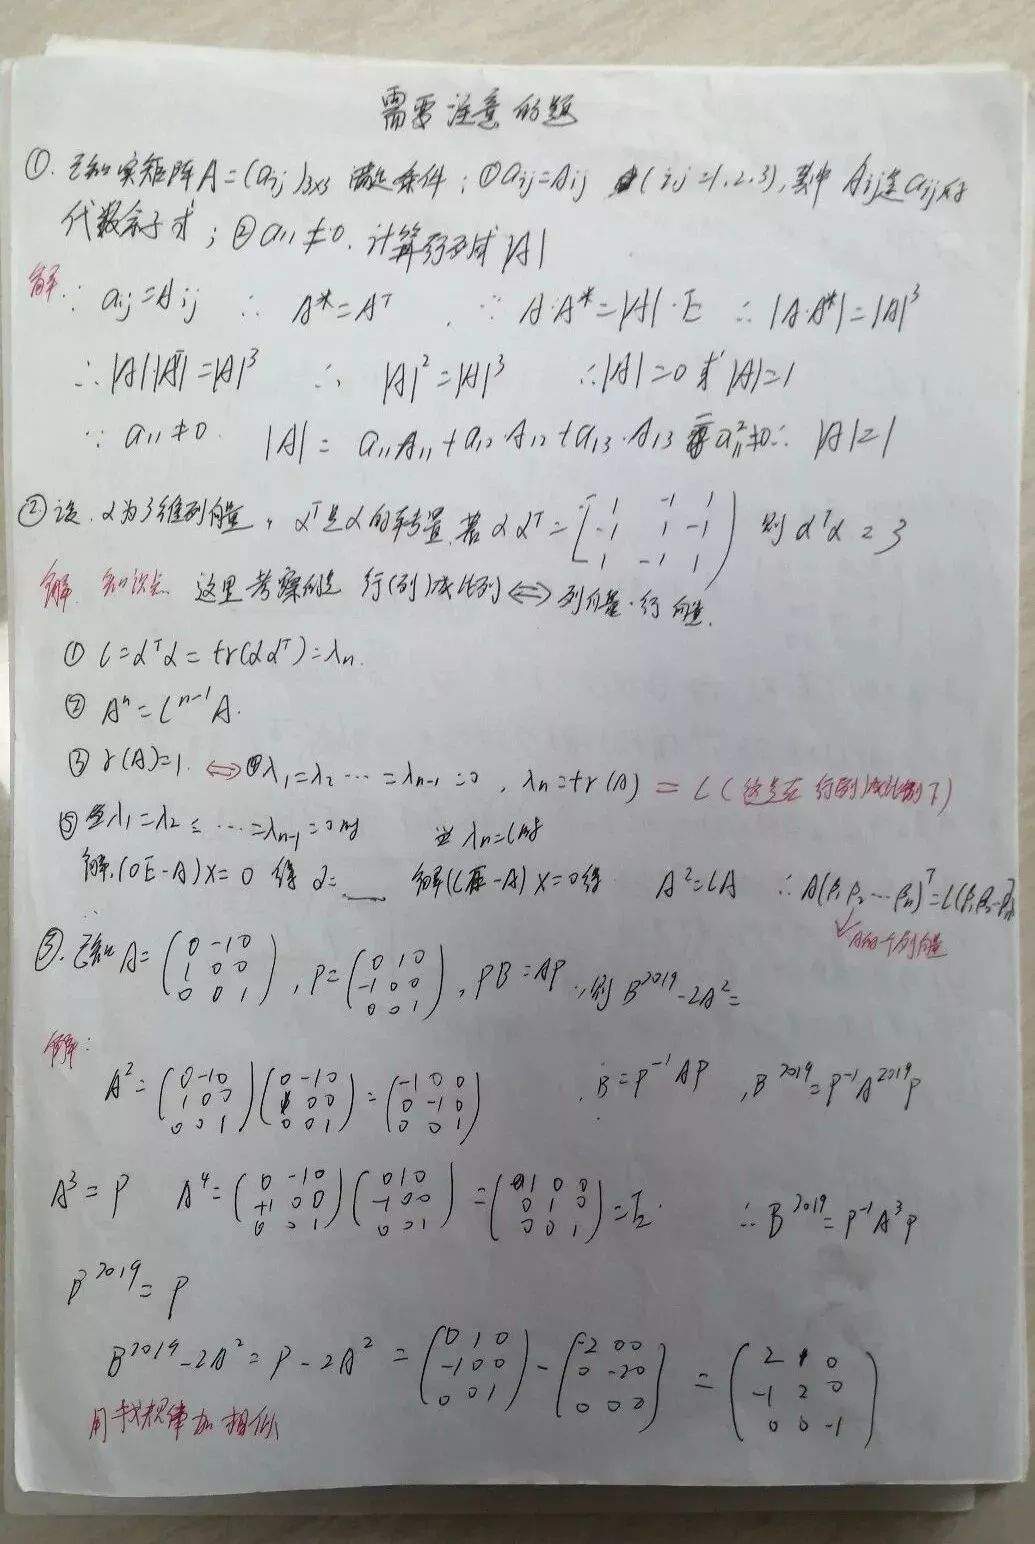 需要注意的题
①. 已知实矩阵A=(aij)3×3 满足条件; ①aij=Aij (i,j=1,2,3),其中 Aij是aij的
代数余子式; ②a11≠0. 计算行列式|A|
解 ∵ aij=Aij ∴ A*=A^T . ∵ A·A*=|A|·E ∴ |A·A*|=|A|³
∴ |A||A^T|=|A|³ ∴ |A|²=|A|³ ∴|A|=0或|A|=1
∵ a11≠0. |A|= a11A11+a12·A12+a13·A13 a11²≠0∴ |A|=1
②设.α为3维列向量, α^T是α的转置.若αα^T=[1 -1 1; -1 1 -1; 1 -1 1) 则α^Tα=3
解. 知识点 这里考察的是 行(列)成比例⟺列向量·行向量.
① l=α^Tα=tr(αα^T)=λn.
② A^n=l^{n-1}A.
③ r(A)=1. ⟺④λ1=λ2…=λn-1=0, λn=tr(A) = l(这是在行(列)成比例下)
⑤当λ1=λ2=…=λn-1=0时 当λn=l时
解.(0E-A)X=0 得α=__ 解(lE-A)X=0得 A²=lA ∴A(β1β2…βn)^T=l(β1β2…βn)^T
A的一个列向量
③.已知A=(0 -1 0; 1 0 0; 0 0 1), P=(0 1 0; -1 0 0; 0 0 1), PB=AP.,则B^2019-2A²=
解:
A²=(0 -1 0; 1 0 0; 0 0 1)(0 -1 0; 1 0 0; 0 0 1)=(-1 0 0; 0 -1 0; 0 0 1) . B=P⁻¹AP , B^2019=P⁻¹A^2019P
A³=P A⁴=(0 -1 0; +1 0 0; 0 0 1)(0 1 0; -1 0 0; 0 0 1)=(1 0 0; 0 1 0; 0 0 1)=E. ∴B^2019=P⁻¹A³P
B^2019=P
B^2019-2A²=P-2A²=(0 1 0; -1 0 0; 0 0 1)-(-2 0 0; 0 -2 0; 0 0 2)=(2 1 0; -1 2 0; 0 0 -1)
用找规律加相似